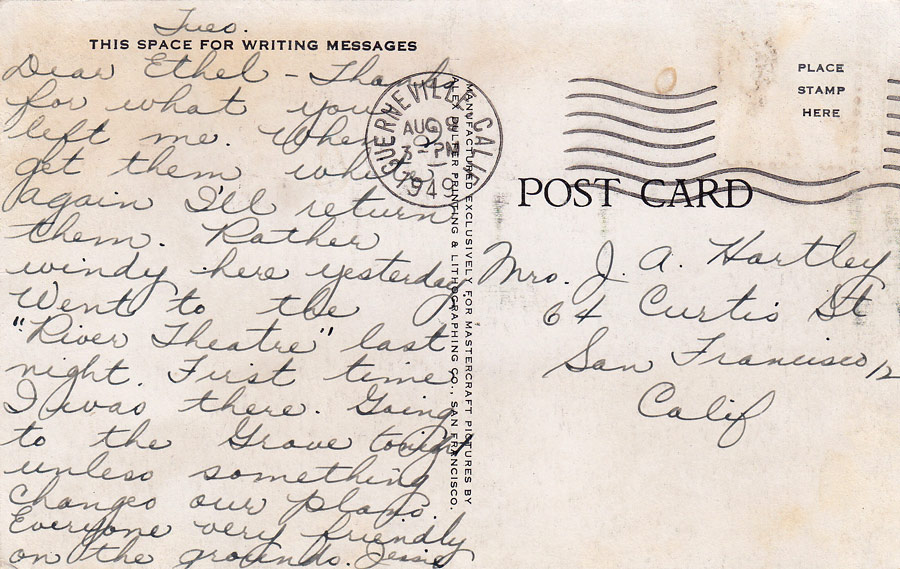 Tues.
THIS SPACE FOR WRITING MESSAGES
Dear Ethel - Thanks
for what you
left me. When I
get them white
again I'll return
them. Rather
windy here yesterday
Went to the
"River Theatre" last
night. First time
I was there. Going
to the Grove tonight
unless something
changes our plans.
Everyone very friendly
on the grounds. Jessie
GUERNEVILLE, CALIF.
AUG 9
3 - PM
194
MANUFACTURED EXCLUSIVELY FOR MASTERCRAFT PICTURES BY
PRINTING & LITHOGRAPHING CO., SAN FRANCISCO.
PLACE
STAMP
HERE
POST CARD
Mrs. J. A. Hartley
64 Curtis St
San Francisco, 12
Calif